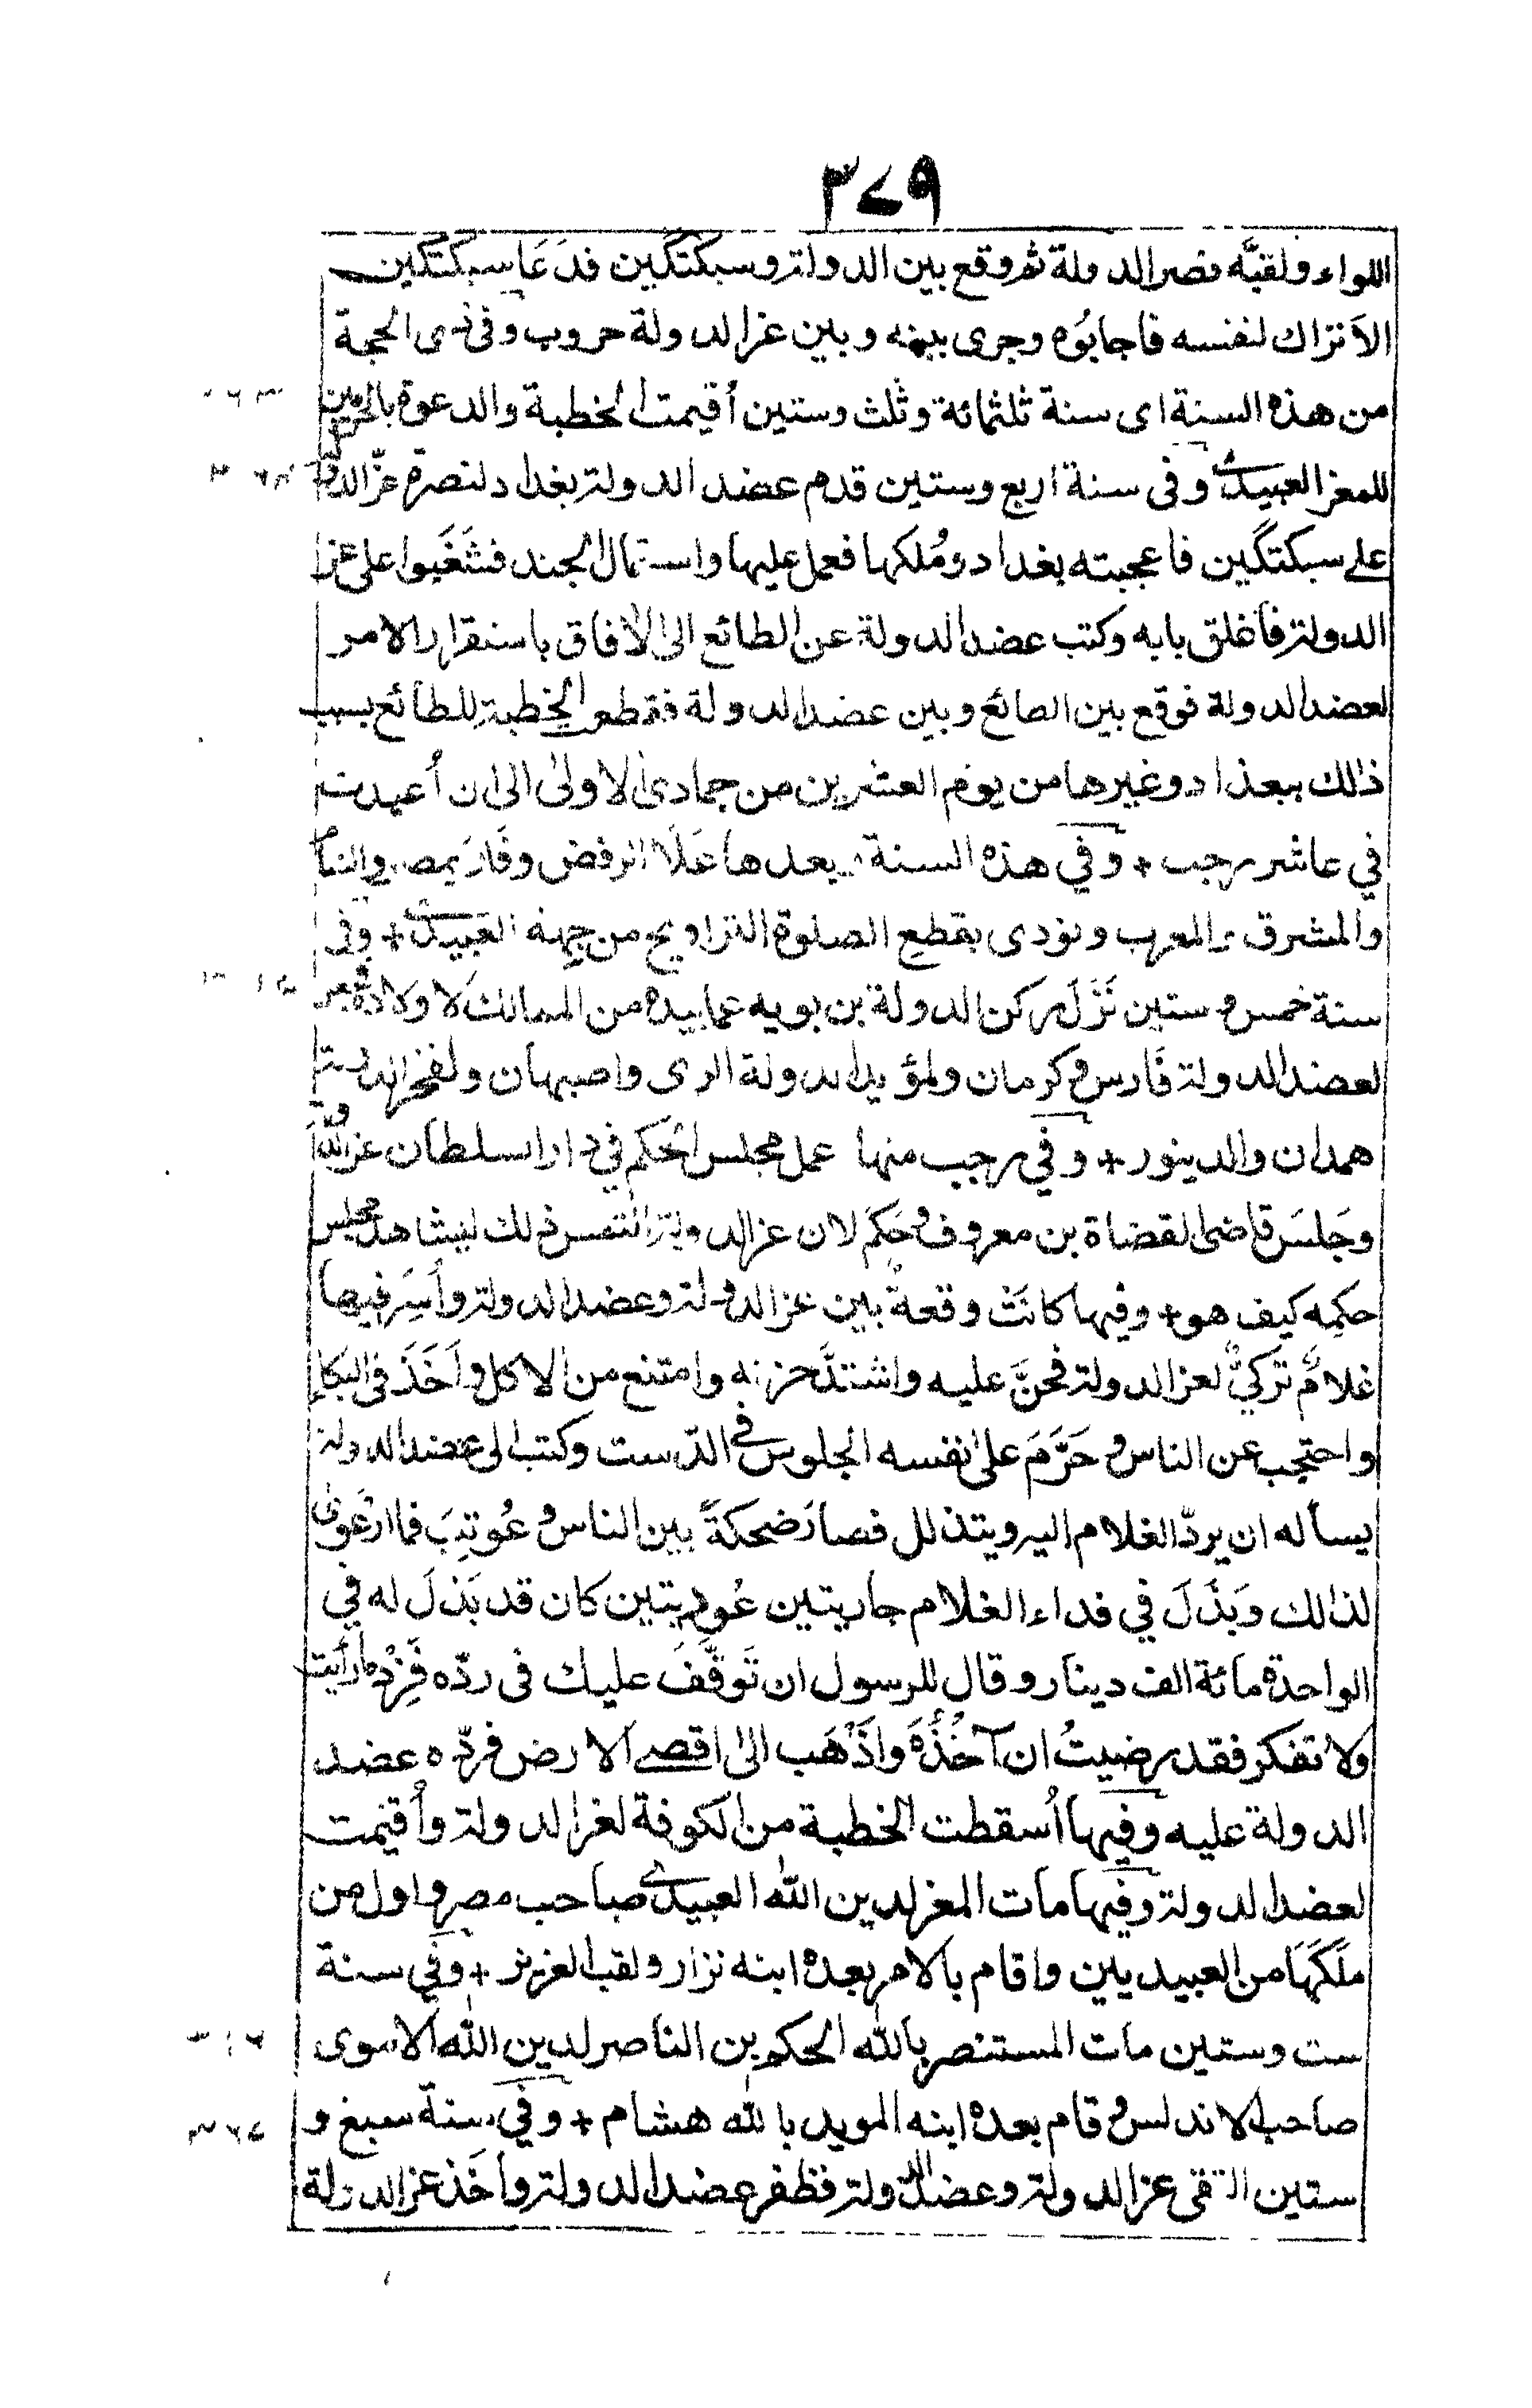 ٣٧٩
اللواء ولقبَّه نصر الدولة ثم وقع بين الدولة وسبكتگين فدَعَا سبكتگين
الاَتراك لنفسه فاجابُوه وجرى بينه وبين عز الدولة حروب وفى ذى الحجة
من هذه السنة اى سنة ثلثمائة وثلث وستين أقيمت الخطبة والدعوة بالحرمين ٣٦٣
للمعز العبيدى وفى سنة اربع وستين قدم عضد الدولة بغداد لنصرة عزّ الدولة ٣٦٤
على سبكتگين فاعجبته بغداد ومُلكها فعمل عليها واستمال الجند فشَغَبوا على عز
الدولة فاَغلق بابه وكتب عضد الدولة عن الطائع الى الاٰفاق باستقرار الامر
لعضد الدولة فوقع بين الطائع وبين عضد الدولة فقطعت الخطبة للطائع بسبب
ذالك ببغداد وغيرها من يوم العشرين من جمادى الاولىٰ الى ان أعيدت
في عاشر رجب + وفي هذه السنة وبعدها غَلَا الرفض وفَارَ بمصر والشام
والمشرق والمغرب ونودى بقطع الصلوة التراويح من جهة العبيدى + وفى
سنة خمس وستين نَزَلَ ركن الدولة بن بويه عما بيده من الممالك لاولاده فجعل
لعضد الدولة فَارس وكرمان ولمؤيد الدولة الرى واصبهان ولفخر الدولة
همدان والدينور + وفي رجب منها عمل مجلس الحُكم في دار السلطان عز الدولة
وجَلسَ قاضى القضاة بن معروف وحَكَم لان عز الدولة التمس ذلك ليشاهد مجلس
حكمه كيف هو + وفيها كانَتْ وقعةٌ بين عز الدولة وعضد الدولة وأُسِرَ فيها
غلامٌ تركيٌّ لعز الدولة فحَنَّ عليه واشتدَّ حزنه وامتنع من الاكل وأَخَذَ فى البكاءِ
واحتجب عن الناس وحَرَّمَ على نفسه الجلوس في الدّست وكتب الى عضد الدولة
يسأله ان يردّ الغلام اليه ويتذلل فصارَ ضحكةً بين الناس وعُوتِبَ فما ارْعَوىٰ
لذالك وبَذَلَ في فداء الغلام جاريتين عُوديتين كان قد بَذلَ له في
الواحدة مائة الف دينار وقال للرسول ان تَوَقَّفَ عليك فى ردّه فَزِدْ ما رأيت
ولا تفكر فقد رضيتُ ان آخُذَهُ واَذْهَب الىٰ اقصى الارض فردّه عضد
الدولة عليه وفيها أُسقطت الخطبة من الكوفة لعز الدولة وأُقيمت
لعضد الدولة وفيها مات المعز لدين الله العبيدى صاحب مصر واول من
ملَكَهَا من العبيديين واقام بالامر بعده ابنه نزار ولقب العزيز + وفي سنة
ست وستين مات المستنصر بالله الحكم بن الناصر لدين الله الاموى ٣٦٦
صاحب الاندلس وقام بعده ابنه المويد بالله هشام + وفي سنة سبع و ٣٦٧
ستين التقى عز الدولة وعضد الدولة فظفر عضد الدولة وأخذ عز الدولة